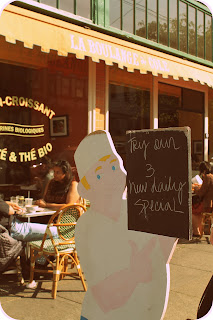 LA BOULANGE
-CROISSANT
BIOLOGIQUES
& THÉ BIO
Try our
3
new daily
Special